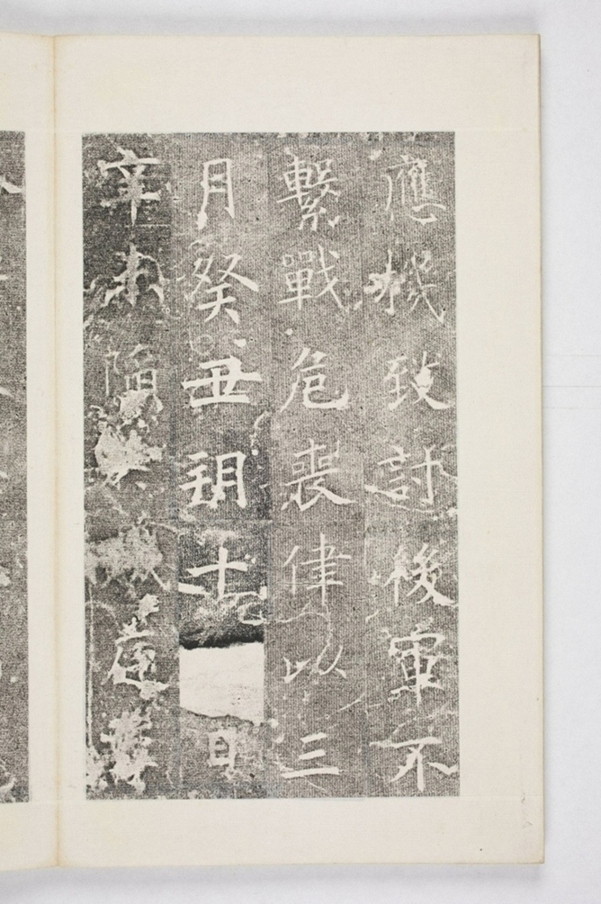 應機致討後軍不
繫戰危喪律以三
月癸丑朔十日
辛未陷